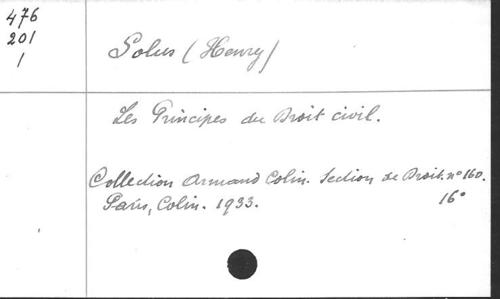 476
201
1
Solus (Henry)
Les Principes du Droit civil.
Collection Armand Colin. Section de Droit. n° 160.
Paris, Colin. 1933. 16°